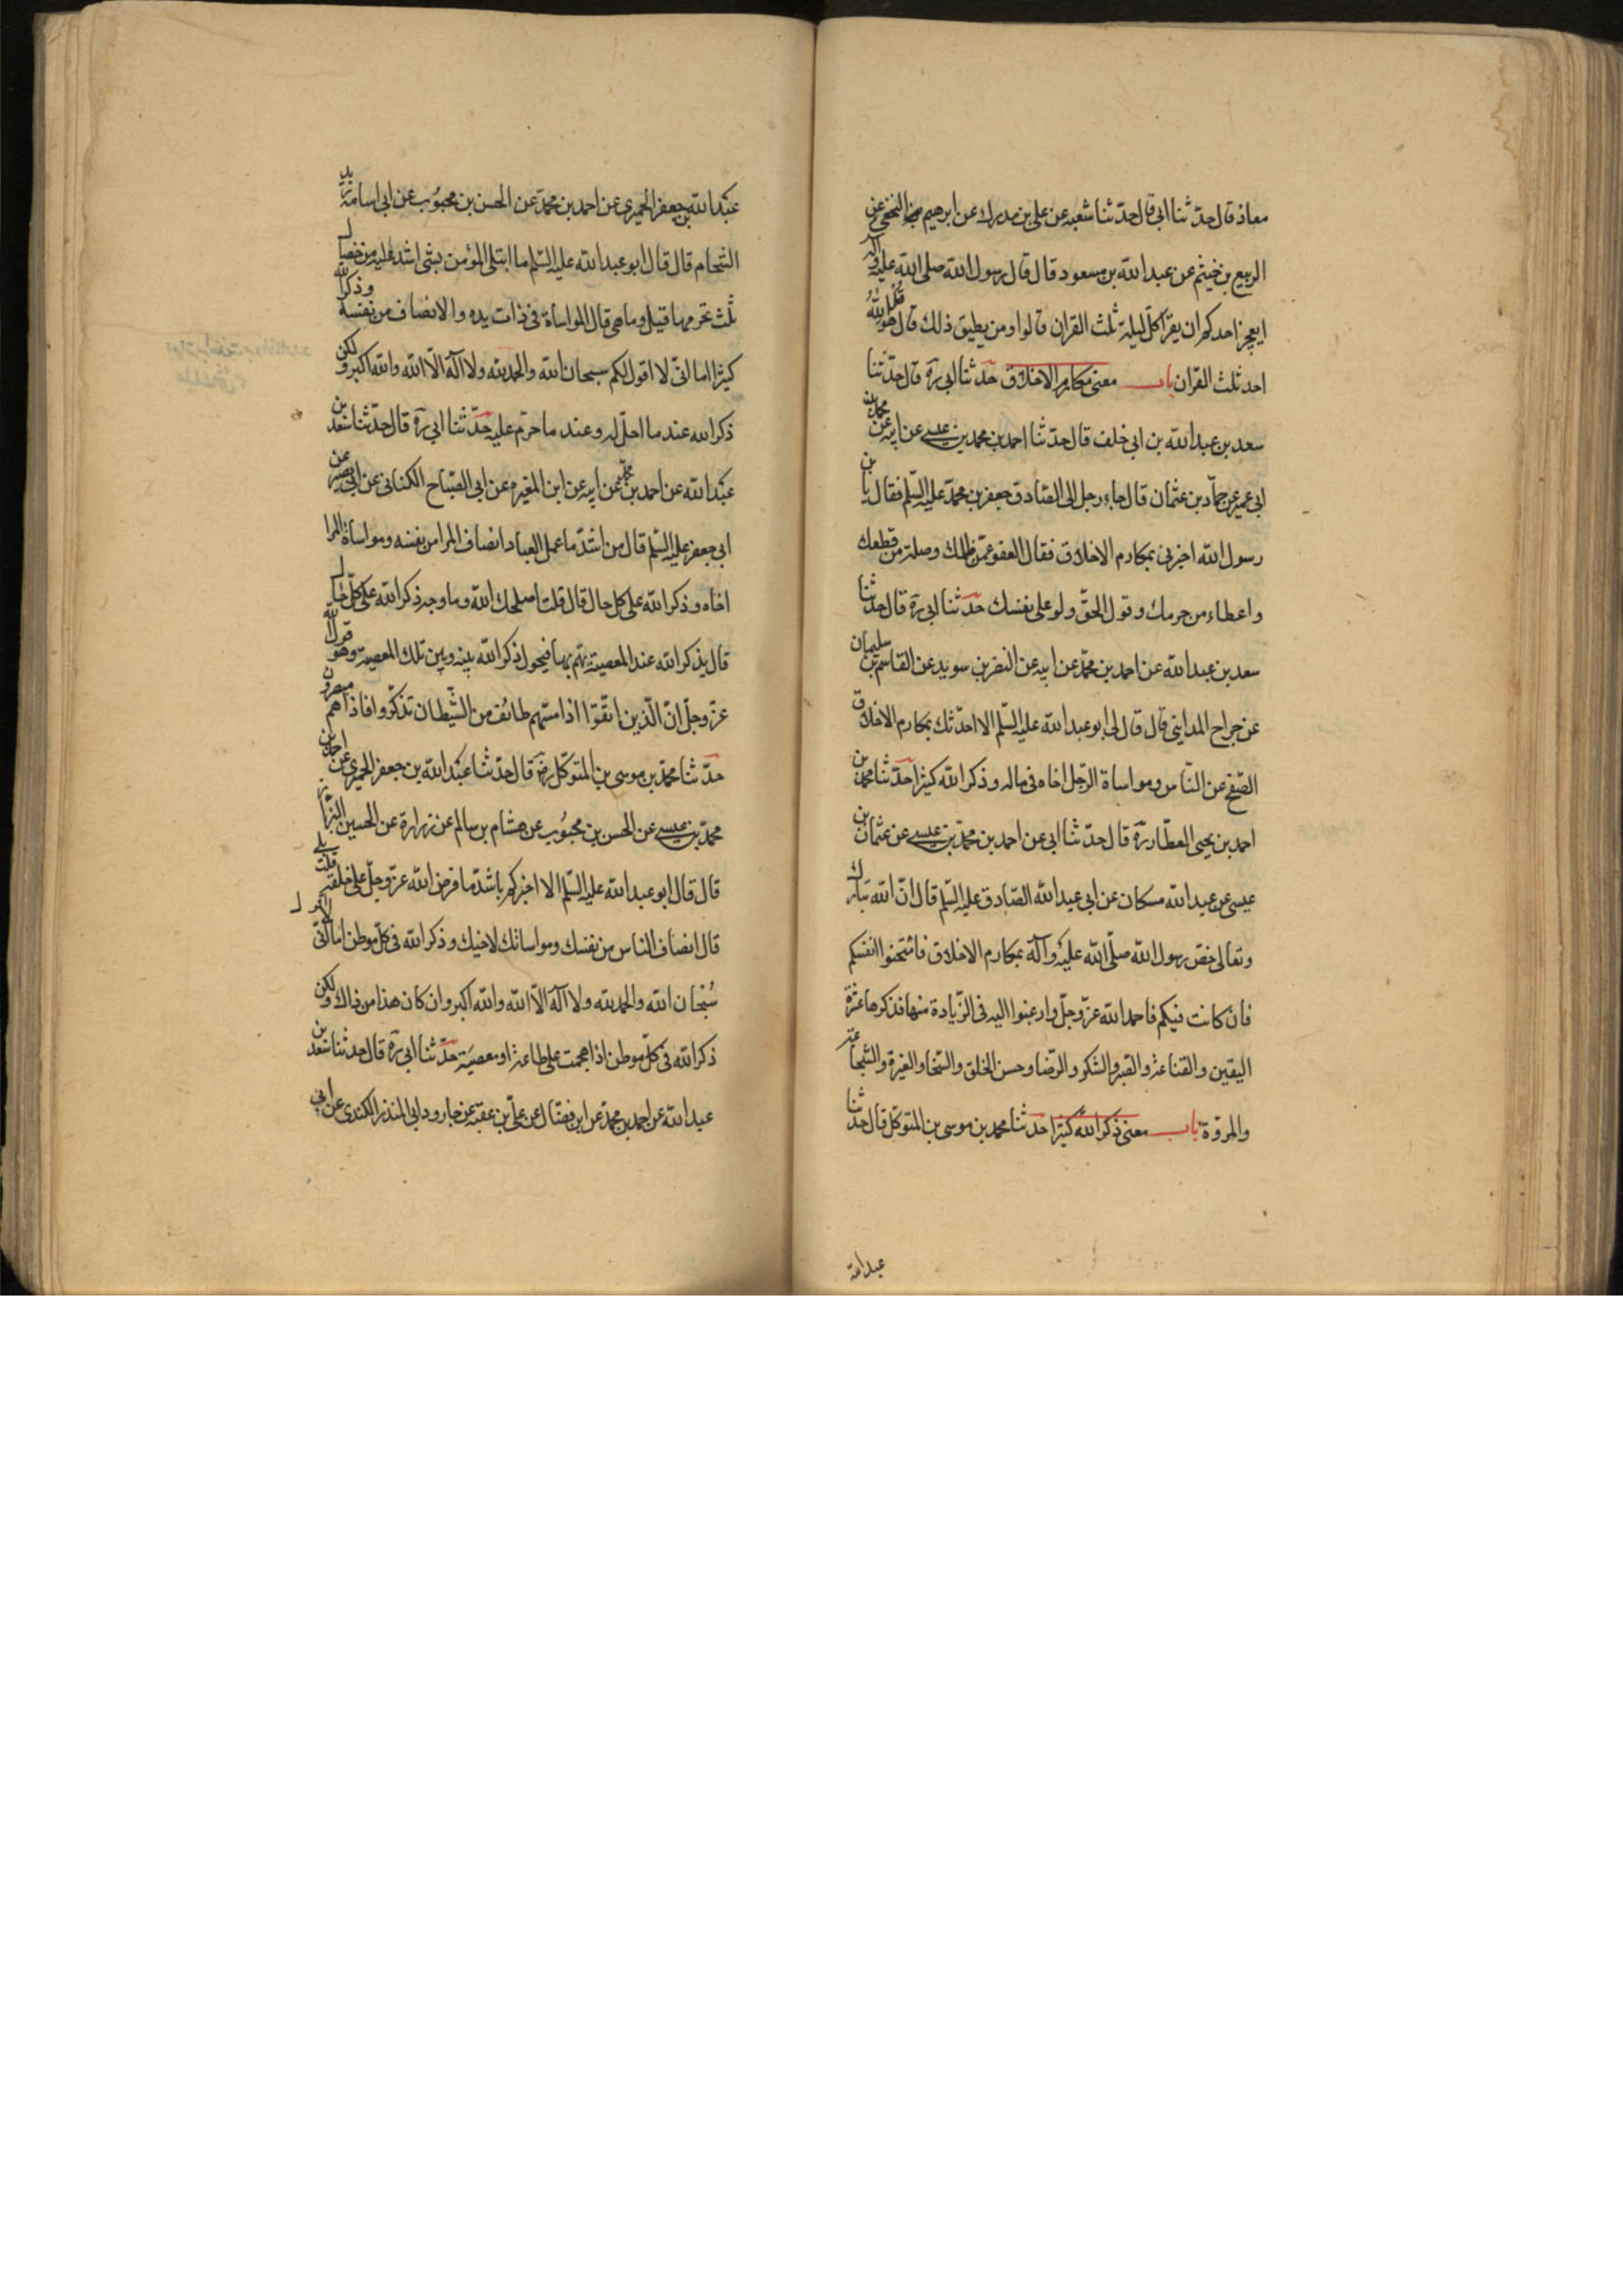 معاذ قال حدّثنا ابي قال حدّثنا شعبه عن علي بن مدرك عن ابرهيم النخعي عن
الربيع بن خيثم عن عبد الله بن مسعود قال قال رسول الله صلى الله عليه وآله
ايعجز احدكم ان يقرأ كلّ ليلة ثلث القران قالوا ومن يطيق ذلك قال قل هو الله
احد ثلث القران باب معنى مكارم الاخلاق حدّثنا ابي ره قال حدّثنا
سعد بن عبد الله بن ابي خلف قال حدّثنا احمد بن محمد بن عيسى عن ابيه عن محمد بن
ابي عمير عن حمّاد بن عثمان قال جاء رجل الى الصّادق جعفر بن محمّد عليه السّلم فقال يا بن
رسول الله اخبرني بمكارم الاخلاق فقال العفو عمّن ظلمك وصلة من قطعك
واعطاء من حرمك وقول الحقّ ولو على نفسك حدّثنا ابي ره قال حدثنا
سعد بن عبد الله عن احمد بن محمّد عن ابيه عن النضر بن سويد عن القاسم بن سليمان
عن جراح المدايني قال قال لي ابو عبد الله عليه السّلم الا احدّثك بمكارم الاخلاق
الصّفح عن النّاس ومواساة الرّجل اخاه في ماله وذكر الله كثيرا حدّثنا محمد بن
احمد بن يحيى العطّار ره قال حدّثنا ابي عن احمد بن محمّد بن عيسى عن عثمان بن
عيسى عن عبد الله مسكان عن ابي عبد الله الصّادق عليه السّلم قال انّ الله تبارك
وتعالى خصّ رسول الله صلّى الله عليه وآله بمكارم الاخلاق فامتحنوا انفسكم
فان كانت فيكم فاحمد الله عزّ وجلّ وارغبوا اليه في الزّيادة منها فذكرها عشرة
اليقين والقناعة والصّبر والشكر والرّضا وحسن الخلق والسّخا والغيرة والشّجاعة
والمروّة باب معنى ذكر الله كثيرا حدّثنا محمد بن موسى بن المتوكّل قال حدّثنا
عبد الله
عبد الله بن جعفر الحميري عن احمد بن محمّد عن الحسن بن محبُوب عن ابي اسامة زيد
الشّحام قال قال ابو عبد الله عليه السّلم ما ابتلي المؤمن بشئ اشدّ عليه من خصال
ثلث يحرمها قيل وما هي قال المواساة في ذات يده والانصاف من نفسه وذكر الله
كثيرا اما انّي لا اقول لكم سبحان الله والحمد لله ولا اله الّا الله والله اكبر ولكن
ذكر الله عند ما احلّ له وعند ما حرّم عليه حدّثنا ابي ره قال حدّثنا سعد بن
عبد الله عن احمد بن محمّد عن ابيه عن ابن المغيره عن ابي الصّباح الكناني عن ابي بصير عن
ابي جعفر عليه السّلم قال من اشدّ ما عمل العباد انصاف المرا من نفسه ومواساة المرا
اخاه وذكر الله على كل حال قال قلت اصلحك الله وما وجه ذكر الله على كلّ حال
قال يذكر الله عند المعصية يهمّ بها فيحول ذكر الله بينه وبين تلك المعصية وهو قول الله
عزّ وجلّ انّ الّذين اتّقوا اذا مسّهم طائف من الشّيطان تذكّروا فاذاهم مبصرون
حدّثنا محمّد بن موسى بن المتوكّل رض قال حدّثنا عبد الله بن جعفر الحميري عن احمد بن
محمّد بن عيسى عن الحسن بن محبُوب عن هشام بن سالم عن زرارة عن الحسين البزّاز
قال قال ابو عبد الله عليه السّلم الا اخبركم باشدّ ما فرض الله عزّ وجلّ على خلقه قلت بلى
قال انصاف الناس من نفسك ومواساتك لاخيك وذكر الله في كلّ موطن اما انّي لا اقول
سُبحان الله والحمد لله ولا اله الّا الله والله اكبر وان كان هذا من ذاك ولكن
ذكر الله في كلّ موطن اذا هجمت على طاعة او معصية حدّثنا ابي ره قال حدثنا سعد بن
عبد الله عن احمد بن محمّد عن ابن فضّال عن علي بن عقبة عن جارود ابي المنذر الكندي عن ابي